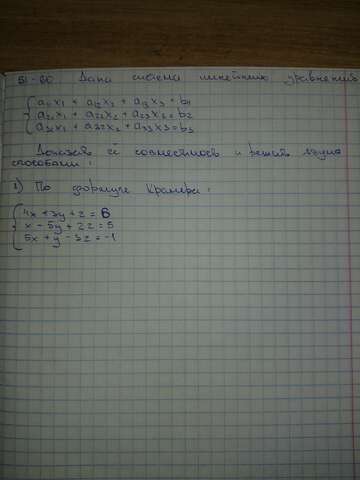 51-60 Дана система линейных уравнений
a₁₁x₁ + a₁₂x₂ + a₁₃x₃ = b₁
a₂₁x₁ + a₂₂x₂ + a₂₃x₃ = b₂
a₃₁x₁ + a₃₂x₂ + a₃₃x₃ = b₃
Доказать её совместность и решить двумя
способами:
1) По формуле Крамера:
4x + 3y + z = 6
x - 5y + 2z = 5
5x + y - 3z = -1